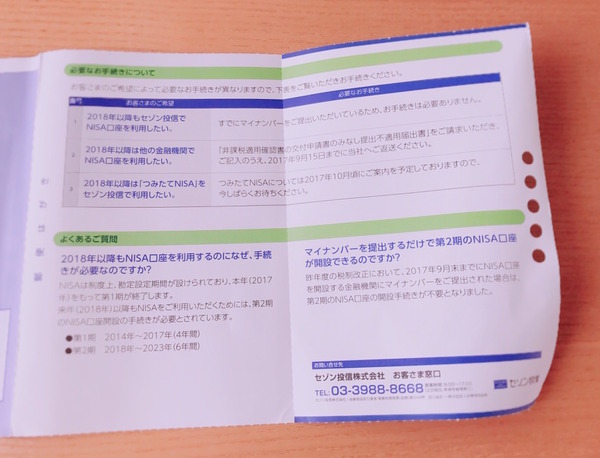 必要なお手続きについて
お客さまのご希望によって必要なお手続きが異なりますので、下表をご覧いただきお手続きください。
番号 お客さまのご希望 必要なお手続き
1 2018年以降もセゾン投信で
NISA口座を利用したい。
すでにマイナンバーをご提出いただいているため、お手続きは必要ありません。
2 2018年以降は他の金融機関で
NISA口座を利用したい。
「非課税適用確認書の交付申請書のみなし提出不適用届出書」をご請求いただき、
ご記入のうえ、2017年9月15日までに当社へご返送ください。
3 2018年以降は「つみたてNISA」を
セゾン投信で利用したい。
つみたてNISAについては2017年10月頃にご案内を予定しておりますので、
今しばらくお待ちください。
よくあるご質問
2018年以降もNISA口座を利用するのになぜ、手続
きが必要なのですか?
NISAは制度上、勘定設定期間が設けられており、本年(2017
年)をもって第1期が終了します。
来年(2018年)以降もNISAをご利用いただくためには、第2期
のNISA口座開設の手続きが必要とされています。
●第1期 2014年~2017年(4年間)
●第2期 2018年~2023年(6年間)
マイナンバーを提出するだけで第2期のNISA口座
が開設できるのですか?
昨年度の税制改正において、2017年9月末までにNISA口座
を開設する金融機関にマイナンバーをご提出された場合は、
第2期のNISA口座の開設手続きが不要となりました。
お問い合せ先
セゾン投信株式会社 お客さま窓口
TEL:03-3988-8668
セゾン投信